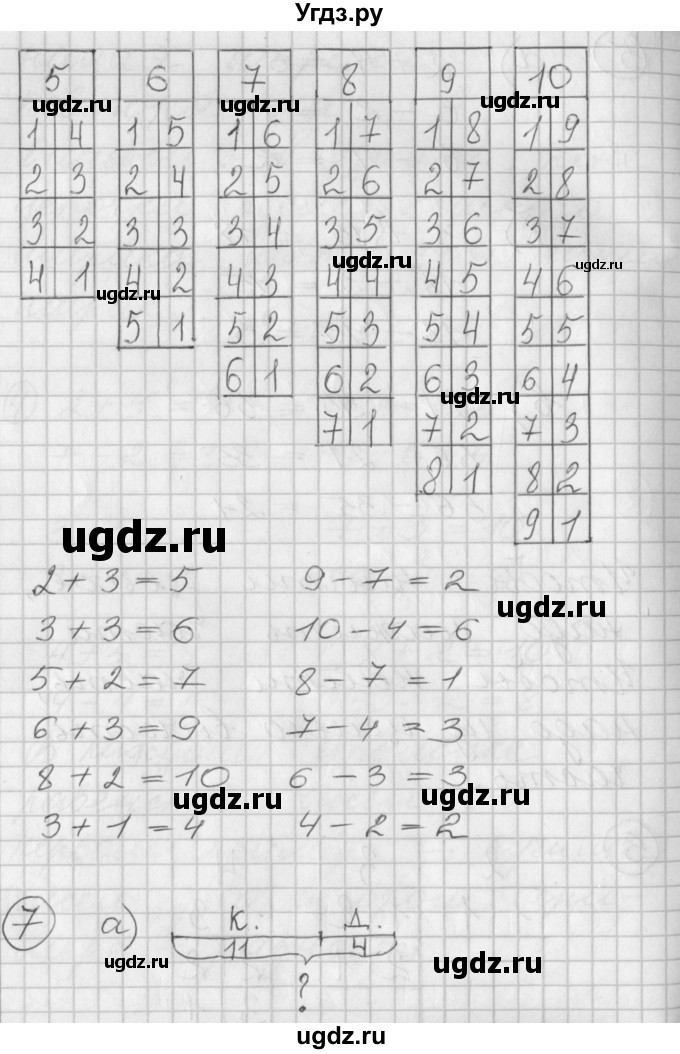 Угдз.ру
5 6 7 8 9 10
ugdz.ru ugdz.ru ugdz.ru ugdz.ru
1 4 1 5 1 6 1 7 1 8 1 9
2 3 2 4 2 5 2 6 2 7 2 8
3 2 3 3 3 4 3 5 3 6 3 7
ugdz.ru ugdz.ru
4 1 4 2 4 3 4 4 4 5 4 6
ugdz.ru
5 1 5 2 5 3 5 4 5 5
6 1 6 2 6 3 6 4
ugdz.ru
7 1 7 2 7 3
8 1 8 2
9 1
ugdz.ru
2 + 3 = 5 9 - 7 = 2
ugdz.ru
3 + 3 = 6 10 - 4 = 6
5 + 2 = 7 8 - 7 = 1
6 + 3 = 9 7 - 4 = 3
8 + 2 = 10 6 - 3 = 3
ugdz.ru ugdz.ru
3 + 1 = 4 4 - 2 = 2
7 а) К. Д.
11 4
ugdz.ru ugdz.ru
?
ugdz.ru